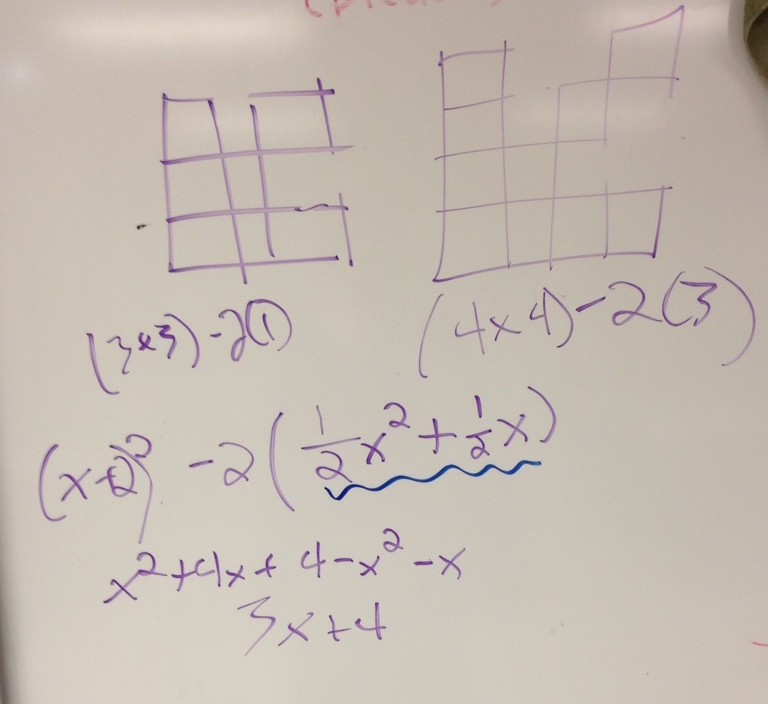 (3x3)-2(1)
(4x4)-2(3)
(x+2)² -2(½x²+½x)
x²+4x+4-x²-x
3x+4